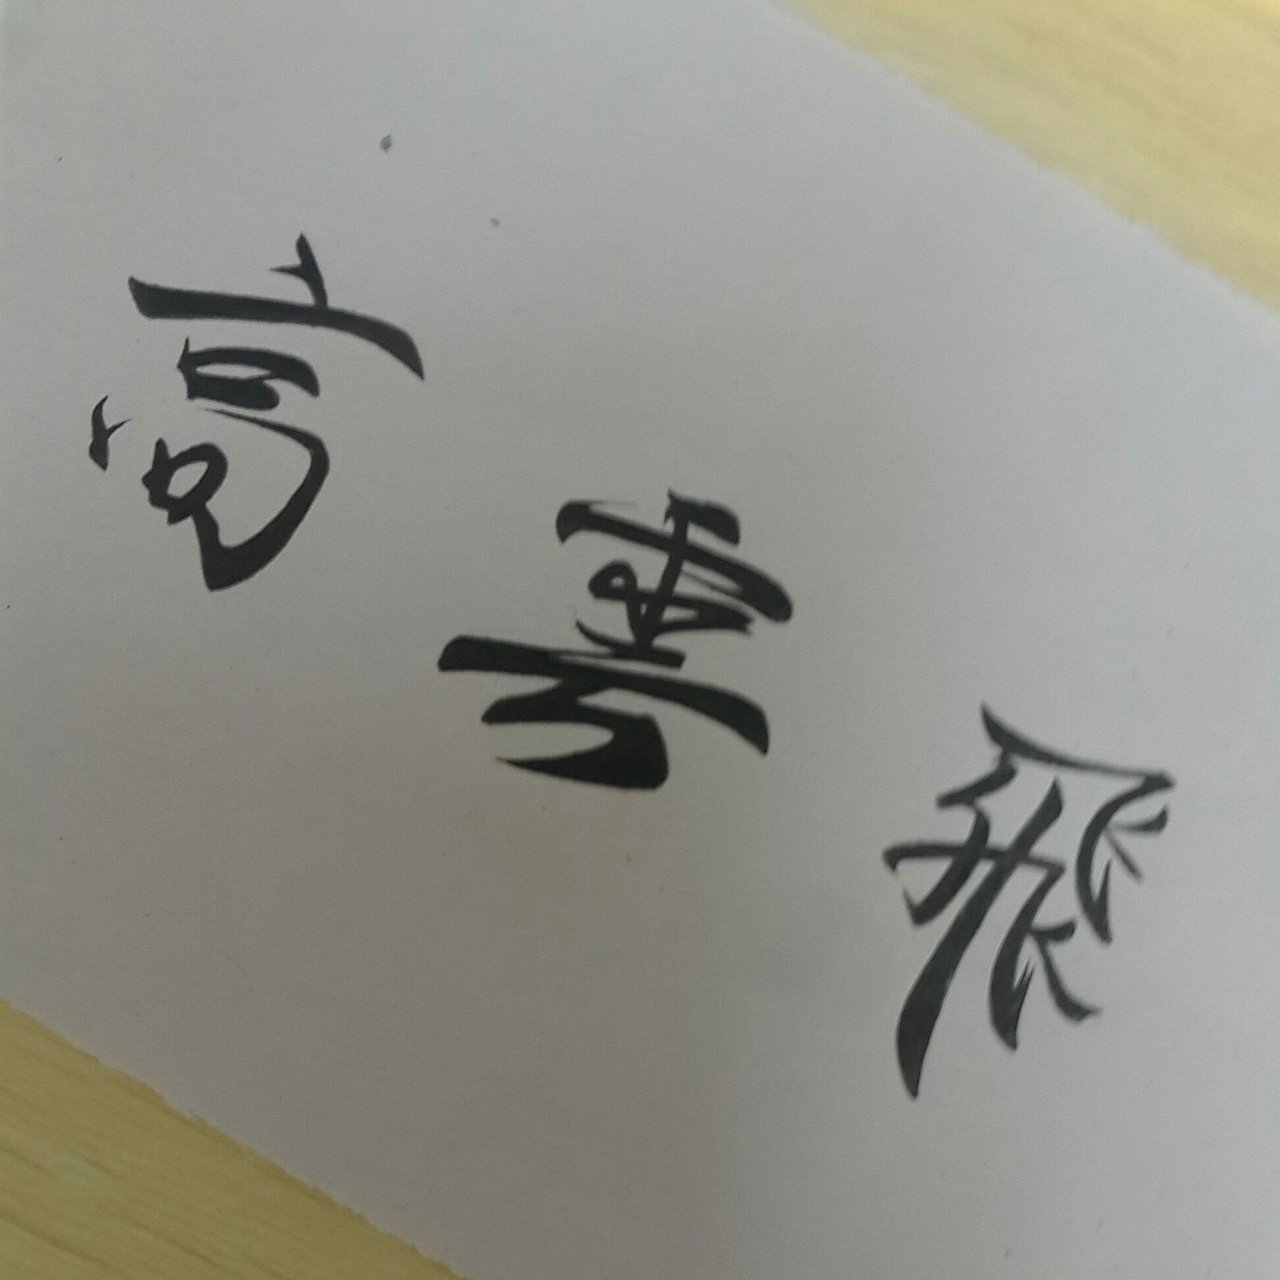 高雲飛